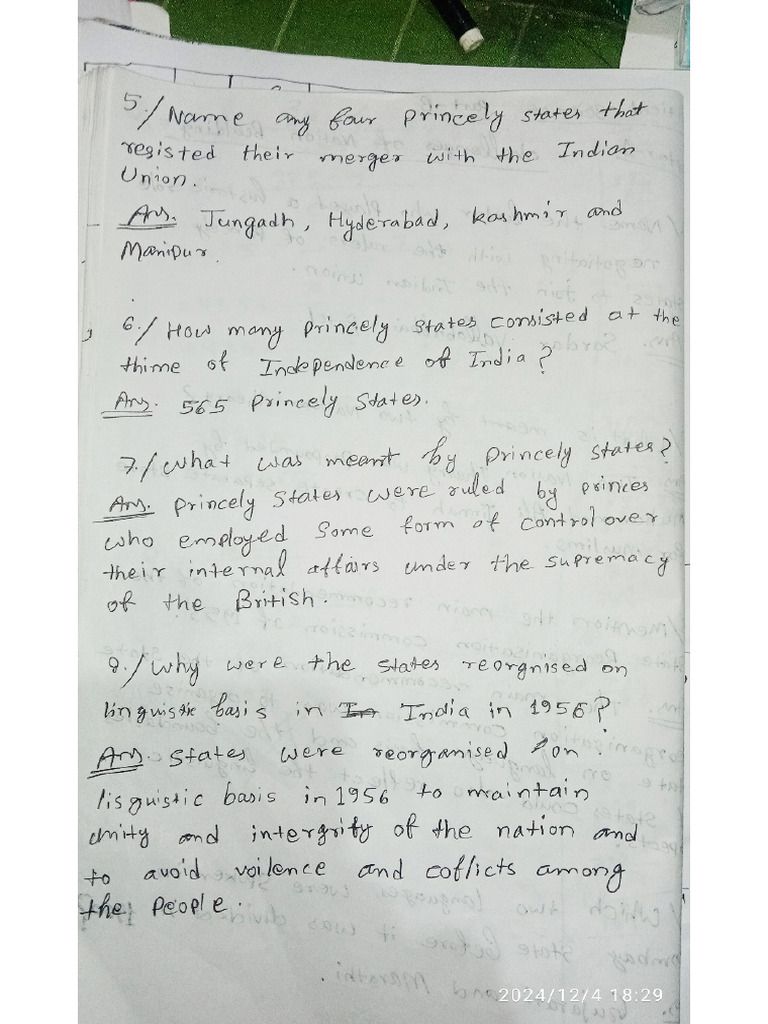 5./ Name any four princely states that
resisted their merger with the Indian
Union.
Ans. Jungadh, Hyderabad, Kashmir and
Manipur.
6./ How many princely states consisted at the
thime of Independence of India?
Ans. 565 Princely States.
7./ What was meant by princely states?
Ans. Princely States were ruled by princes
who employed some form of control over
their internal affairs under the supremacy
of the British.
8./ Why were the states reorgnised on
linguistic basis in In India in 1956?
Ans. States were reorganised on
lisguistic basis in 1956 to maintain
unity and intergrity of the nation and
to avoid voilence and coflicts among
the people.
2024/12/4 18:29